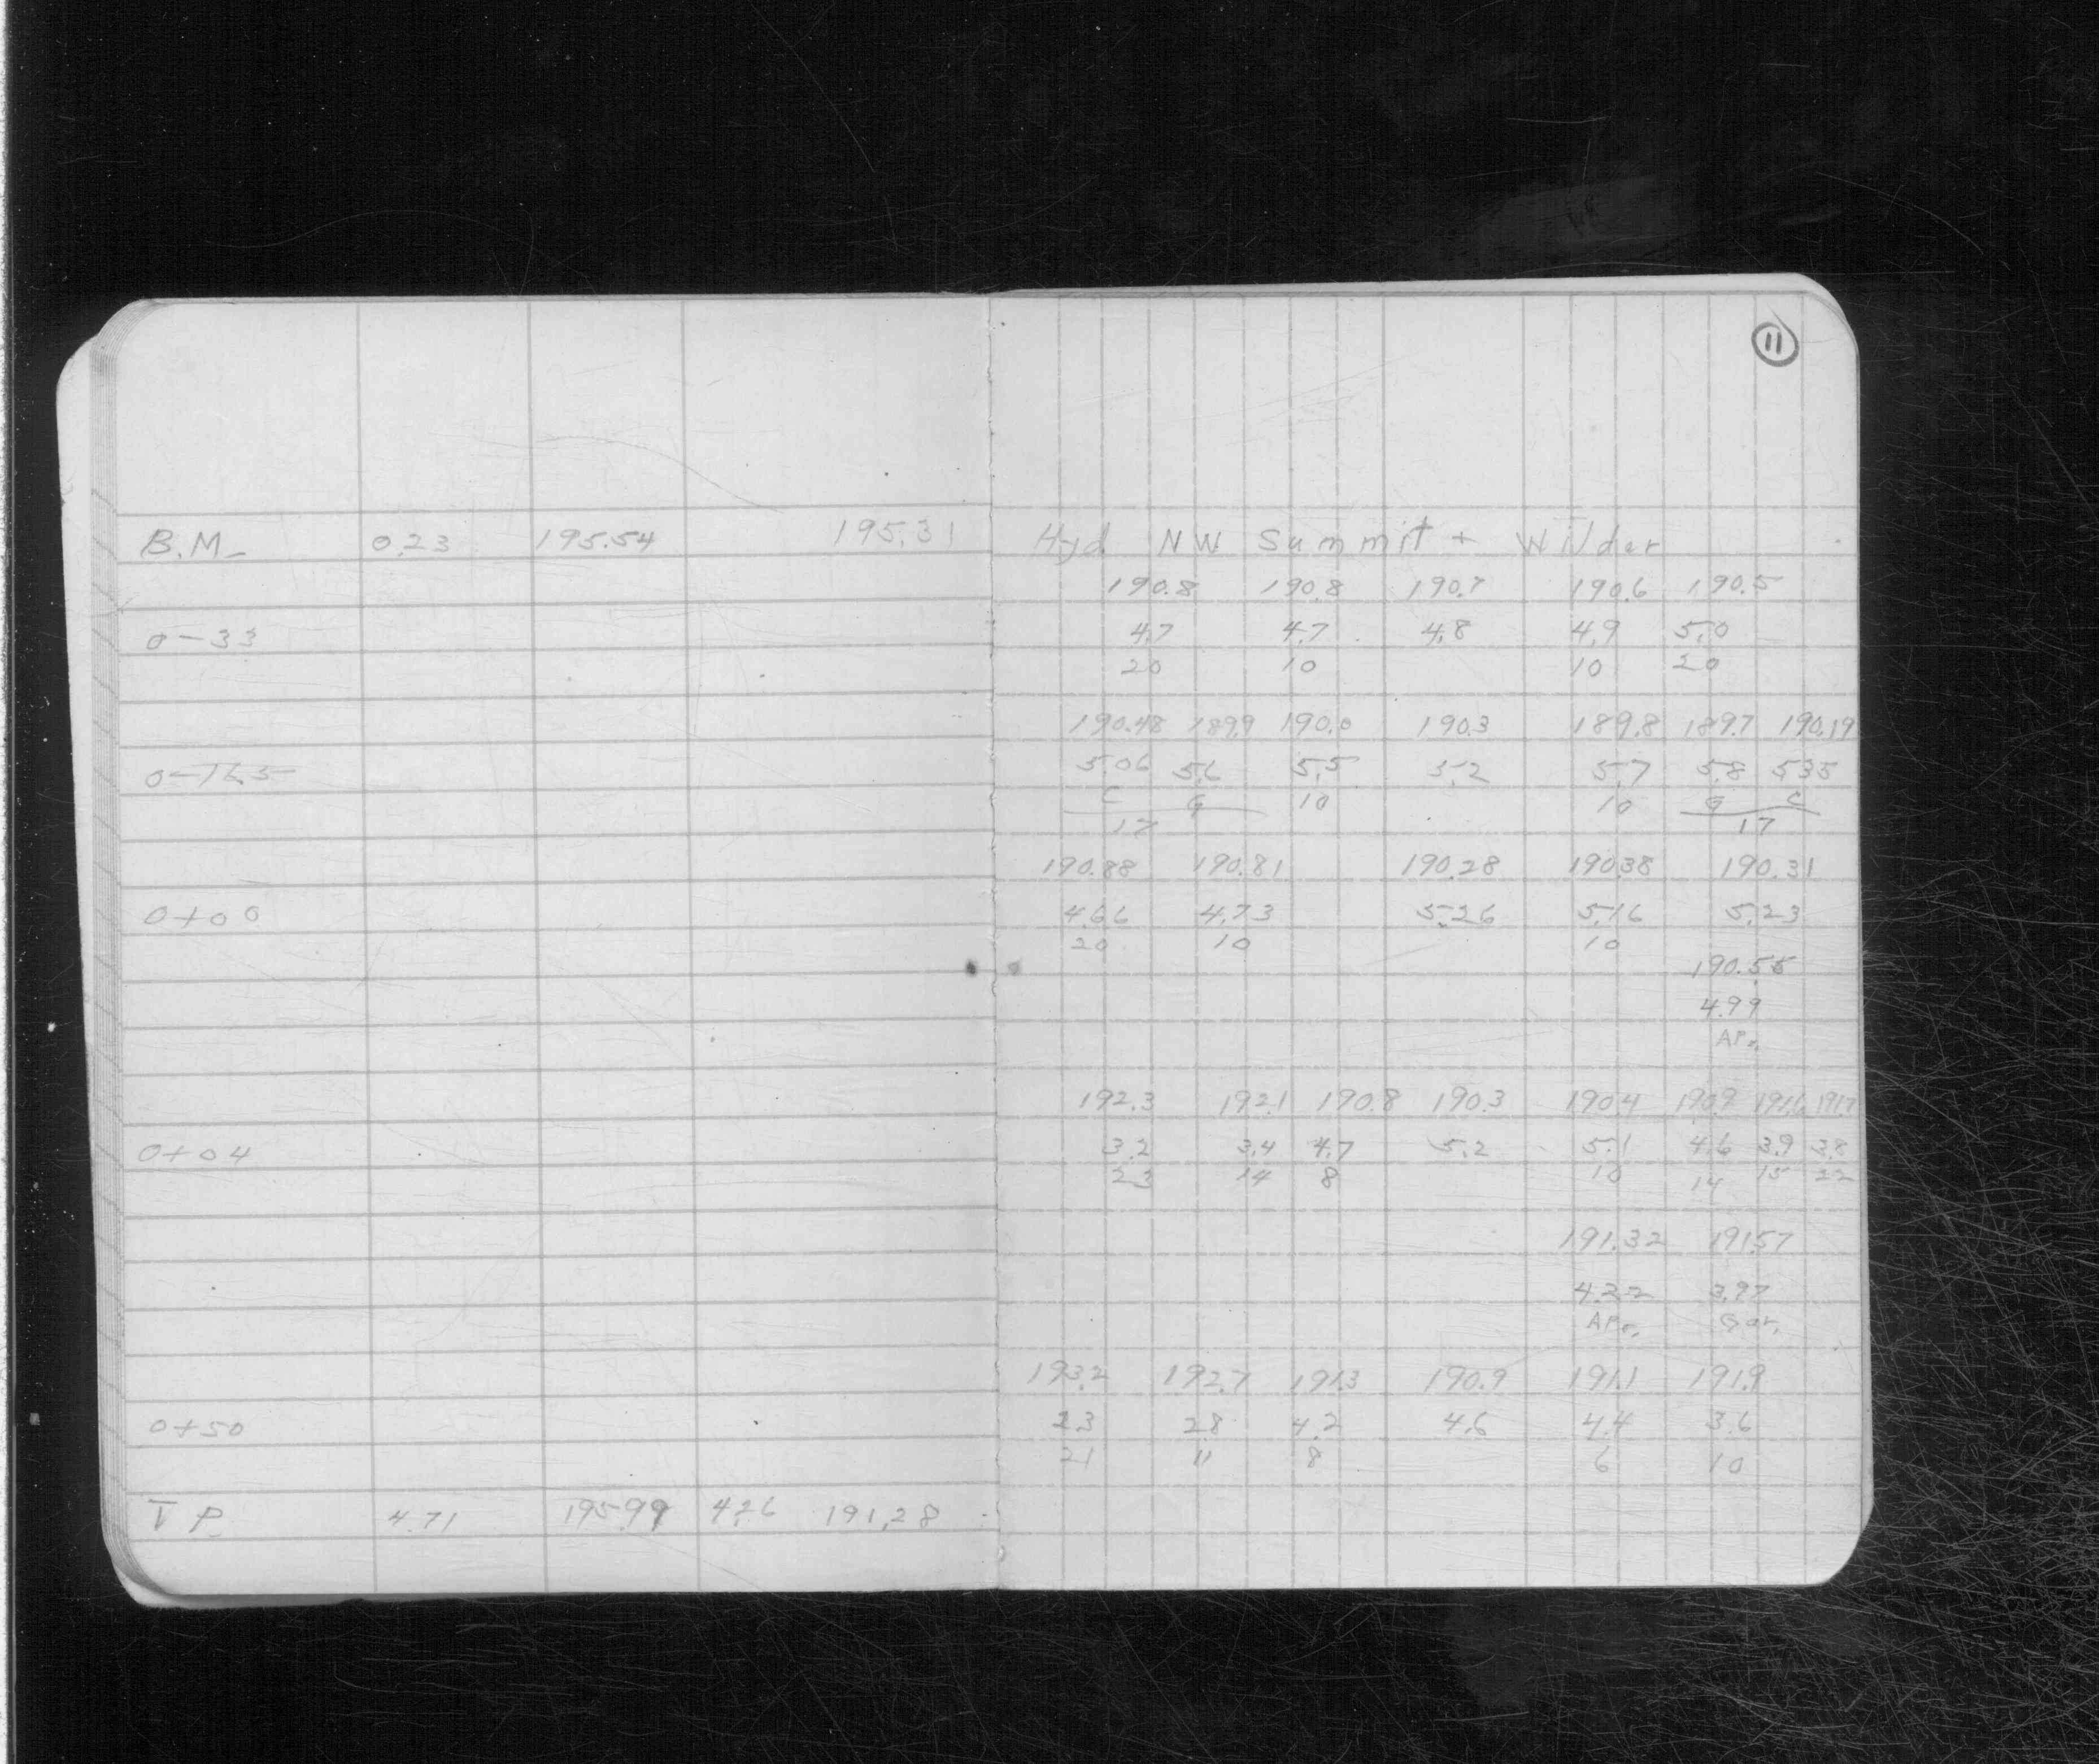 11
B.M. 0.23 195.54 195.31 Hyd NW Summit + Wilder
190.8 190.8 190.7 190.6 190.5
0-33 4.7 4.7 4.8 4.9 5.0
20 10 10 20
190.48 189.9 190.0 190.3 189.8 189.7 190.19
0-16.5 5.06 5.6 5.5 5.2 5.7 5.8 5.35
C G 10 10 G C
17 17
190.88 190.81 190.28 190.38 190.31
0+00 4.66 4.73 5.26 5.16 5.23
20 10 10
190.55
4.99
AP.
192.3 192.1 190.8 190.3 190.4 190.9 191.6 191.7
0+04 3.2 3.4 4.7 5.2 5.1 4.6 3.9 3.8
23 14 8 10 14 15 22
191.32 191.57
4.22 3.97
AP. Gar.
193.2 192.7 191.3 190.9 191.1 191.9
0+50 2.3 2.8 4.2 4.6 4.4 3.6
21 11 8 6 10
T P. 4.71 195.99 4.26 191.28